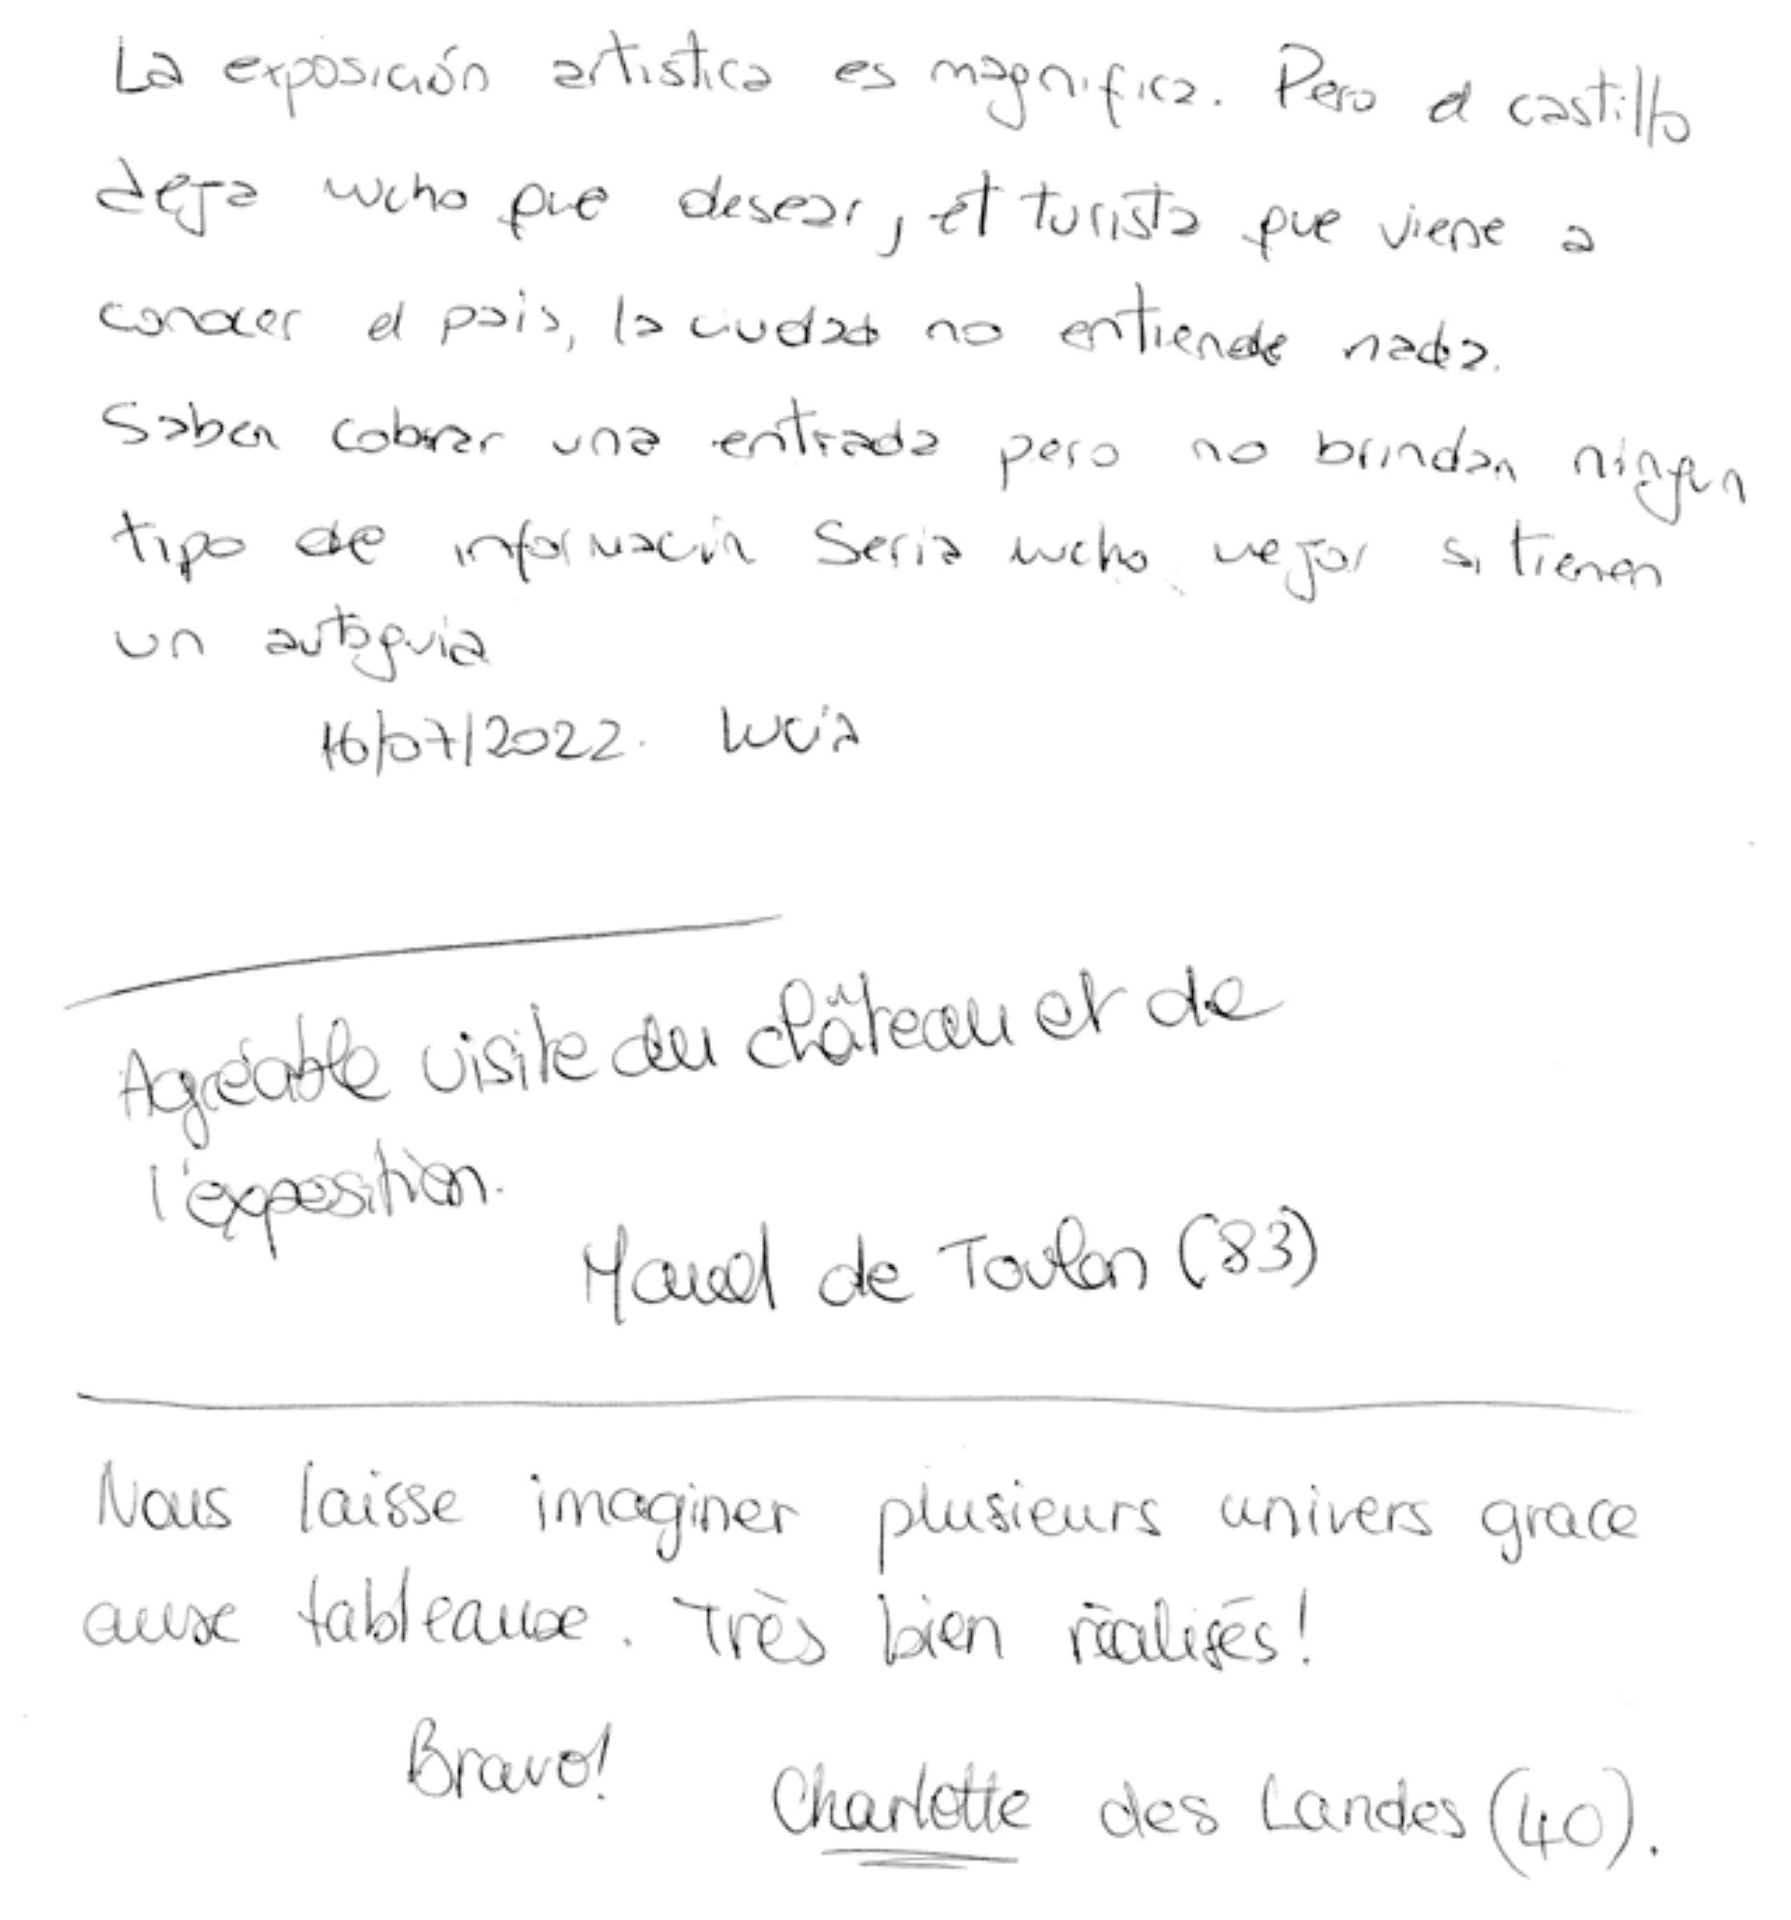 La exposición artistica es magnifica. Pero el castillo
deja mucho que desear, el turista que viene a
conocer el pais, la ciudad no entiende nada.
Saben cobrar una entrada pero no brindan ningun
tipo de información Seria mucho mejor si tienen
un autoguia
16/07/2022. Lucía
Agréable visite du château et de
l'exposition.
de Toulon (83)
Nous laisse imaginer plusieurs univers grace
aux tableaux. Très bien réalisés!
Bravo!
Charlotte des Landes (40).